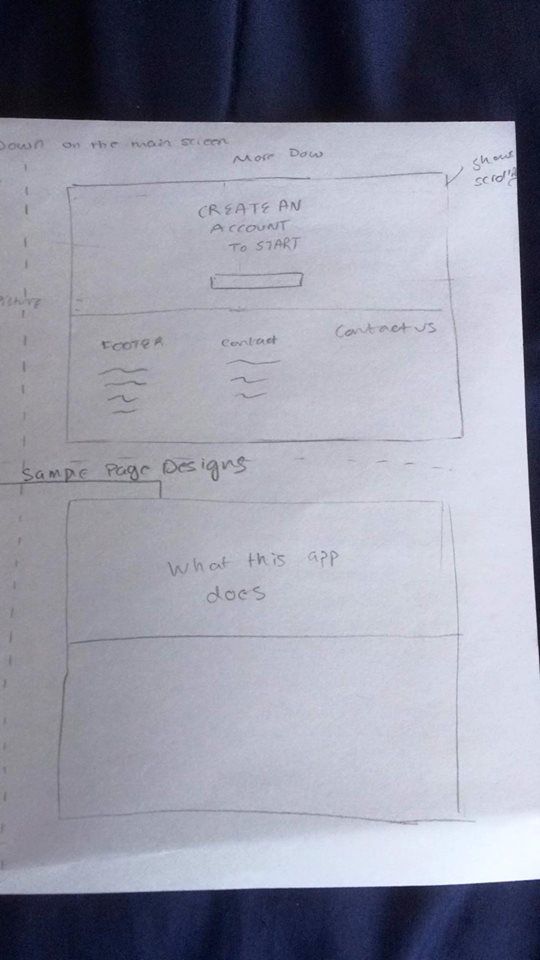 Down on the main screen
More Dow
Shows
scroll
CREATE AN
ACCOUNT
TO START
Picture
FOOTER
Contact
Contact us
Sample Page Designs
What this app
does